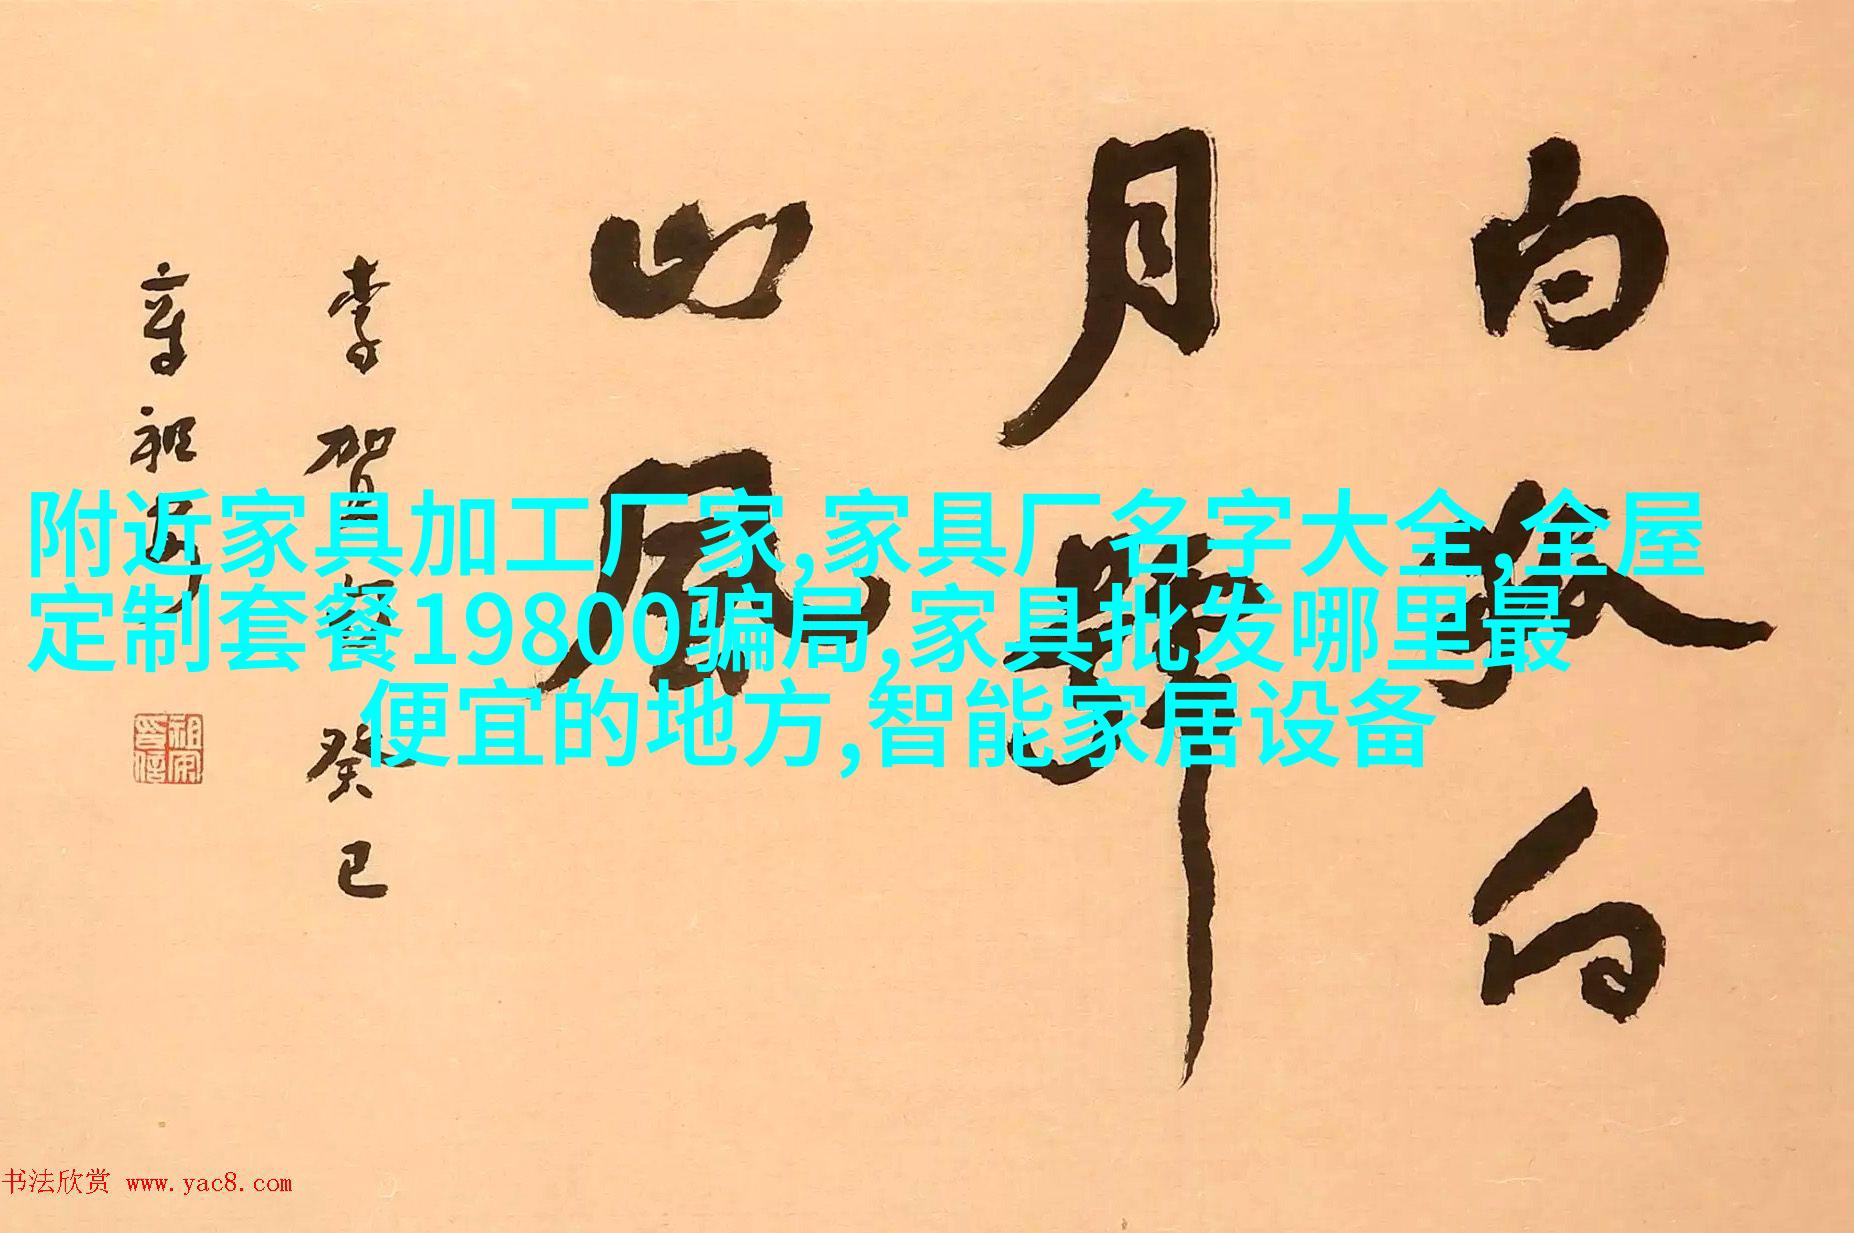 白狐向
月號
山風
李賀 癸巳
章祖安
祖安印信
附近家具加工厂家,家具厂名字大全,全屋
定制套餐19800骗局,家具批发哪里最
便宜的地方,智能家居设备
书法欣赏 www.yac8.com